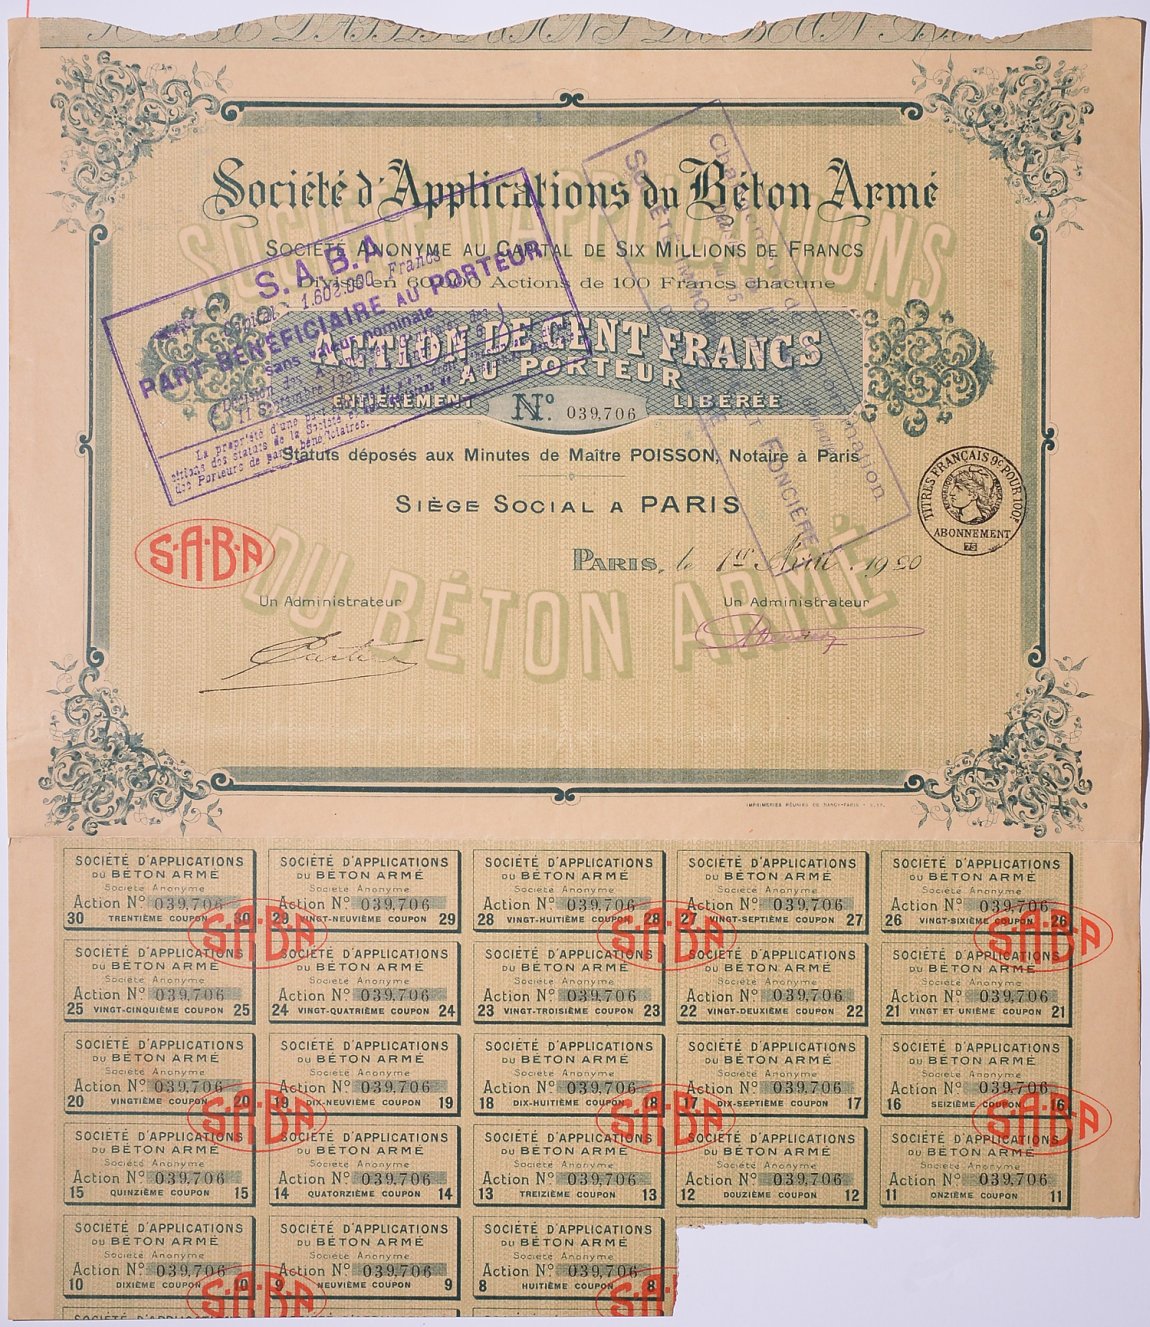 Société d'Applications du Béton Armé
SOCIÉTÉ ANONYME AU CAPITAL DE SIX MILLIONS DE FRANCS
Divisé en 60.000 Actions de 100 Francs chacune
ACTION DE CENT FRANCS
AU PORTEUR
ENTIÈREMENT Nº 039,706 LIBÉRÉE
Statuts déposés aux Minutes de Maître POISSON, Notaire à Paris
SIÈGE SOCIAL A PARIS
PARIS, le 1er 1920
Un Administrateur Un Administrateur
SOCIÉTÉ D'APPLICATIONS
DU BÉTON ARMÉ
S.A.B.A.
1.602.000 Francs
PART BÉNÉFICIAIRE AU PORTEUR
sans valeur nominale
11 Septembre
La propriété d'une part
des statuts de la Société
des Porteurs de parts bénéficiaires.
SOCIÉTÉ
FONCIÈRE
S·A·B·A
TITRES FRANÇAIS 9c POUR 100F
ABONNEMENT
75
IMPRIMERIES RÉUNIES DE NANCY-PARIS
SOCIÉTÉ D'APPLICATIONS
DU BÉTON ARMÉ
Société Anonyme
Action Nº 039,706
30 TRENTIÈME COUPON 30
SOCIÉTÉ D'APPLICATIONS
DU BÉTON ARMÉ
Société Anonyme
Action Nº 039,706
29 VINGT-NEUVIÈME COUPON 29
SOCIÉTÉ D'APPLICATIONS
DU BÉTON ARMÉ
Société Anonyme
Action Nº 039,706
28 VINGT-HUITIÈME COUPON 28
SOCIÉTÉ D'APPLICATIONS
DU BÉTON ARMÉ
Société Anonyme
Action Nº 039,706
27 VINGT-SEPTIÈME COUPON 27
SOCIÉTÉ D'APPLICATIONS
DU BÉTON ARMÉ
Société Anonyme
Action Nº 039,706
26 VINGT-SIXIÈME COUPON 26
S·A·B·A
S·A·B·A
S·A·B·A
SOCIÉTÉ D'APPLICATIONS
DU BÉTON ARMÉ
Société Anonyme
Action Nº 039,706
25 VINGT-CINQUIÈME COUPON 25
SOCIÉTÉ D'APPLICATIONS
DU BÉTON ARMÉ
Société Anonyme
Action Nº 039,706
24 VINGT-QUATRIÈME COUPON 24
SOCIÉTÉ D'APPLICATIONS
DU BÉTON ARMÉ
Société Anonyme
Action Nº 039,706
23 VINGT-TROISIÈME COUPON 23
SOCIÉTÉ D'APPLICATIONS
DU BÉTON ARMÉ
Société Anonyme
Action Nº 039,706
22 VINGT-DEUXIÈME COUPON 22
SOCIÉTÉ D'APPLICATIONS
DU BÉTON ARMÉ
Société Anonyme
Action Nº 039,706
21 VINGT ET UNIÈME COUPON 21
SOCIÉTÉ D'APPLICATIONS
DU BÉTON ARMÉ
Société Anonyme
Action Nº 039,706
20 VINGTIÈME COUPON 20
SOCIÉTÉ D'APPLICATIONS
DU BÉTON ARMÉ
Société Anonyme
Action Nº 039,706
19 DIX-NEUVIÈME COUPON 19
SOCIÉTÉ D'APPLICATIONS
DU BÉTON ARMÉ
Société Anonyme
Action Nº 039,706
18 DIX-HUITIÈME COUPON 18
SOCIÉTÉ D'APPLICATIONS
DU BÉTON ARMÉ
Société Anonyme
Action Nº 039,706
17 DIX-SEPTIÈME COUPON 17
SOCIÉTÉ D'APPLICATIONS
DU BÉTON ARMÉ
Société Anonyme
Action Nº 039,706
16 SEIZIÈME COUPON 16
S·A·B·A
S·A·B·A
S·A·B·A
SOCIÉTÉ D'APPLICATIONS
DU BÉTON ARMÉ
Société Anonyme
Action Nº 039,706
15 QUINZIÈME COUPON 15
SOCIÉTÉ D'APPLICATIONS
DU BÉTON ARMÉ
Société Anonyme
Action Nº 039,706
14 QUATORZIÈME COUPON 14
SOCIÉTÉ D'APPLICATIONS
DU BÉTON ARMÉ
Société Anonyme
Action Nº 039,706
13 TREIZIÈME COUPON 13
SOCIÉTÉ D'APPLICATIONS
DU BÉTON ARMÉ
Société Anonyme
Action Nº 039,706
12 DOUZIÈME COUPON 12
SOCIÉTÉ D'APPLICATIONS
DU BÉTON ARMÉ
Société Anonyme
Action Nº 039,706
11 ONZIÈME COUPON 11
SOCIÉTÉ D'APPLICATIONS
DU BÉTON ARMÉ
Société Anonyme
Action Nº 039,706
10 DIXIÈME COUPON 10
SOCIÉTÉ D'APPLICATIONS
DU BÉTON ARMÉ
Société Anonyme
Action Nº 039,706
9 NEUVIÈME COUPON 9
SOCIÉTÉ D'APPLICATIONS
DU BÉTON ARMÉ
Société Anonyme
Action Nº 039,706
8 HUITIÈME COUPON 8
S·A·B·A
SOCIÉTÉ D'APPLICATIONS